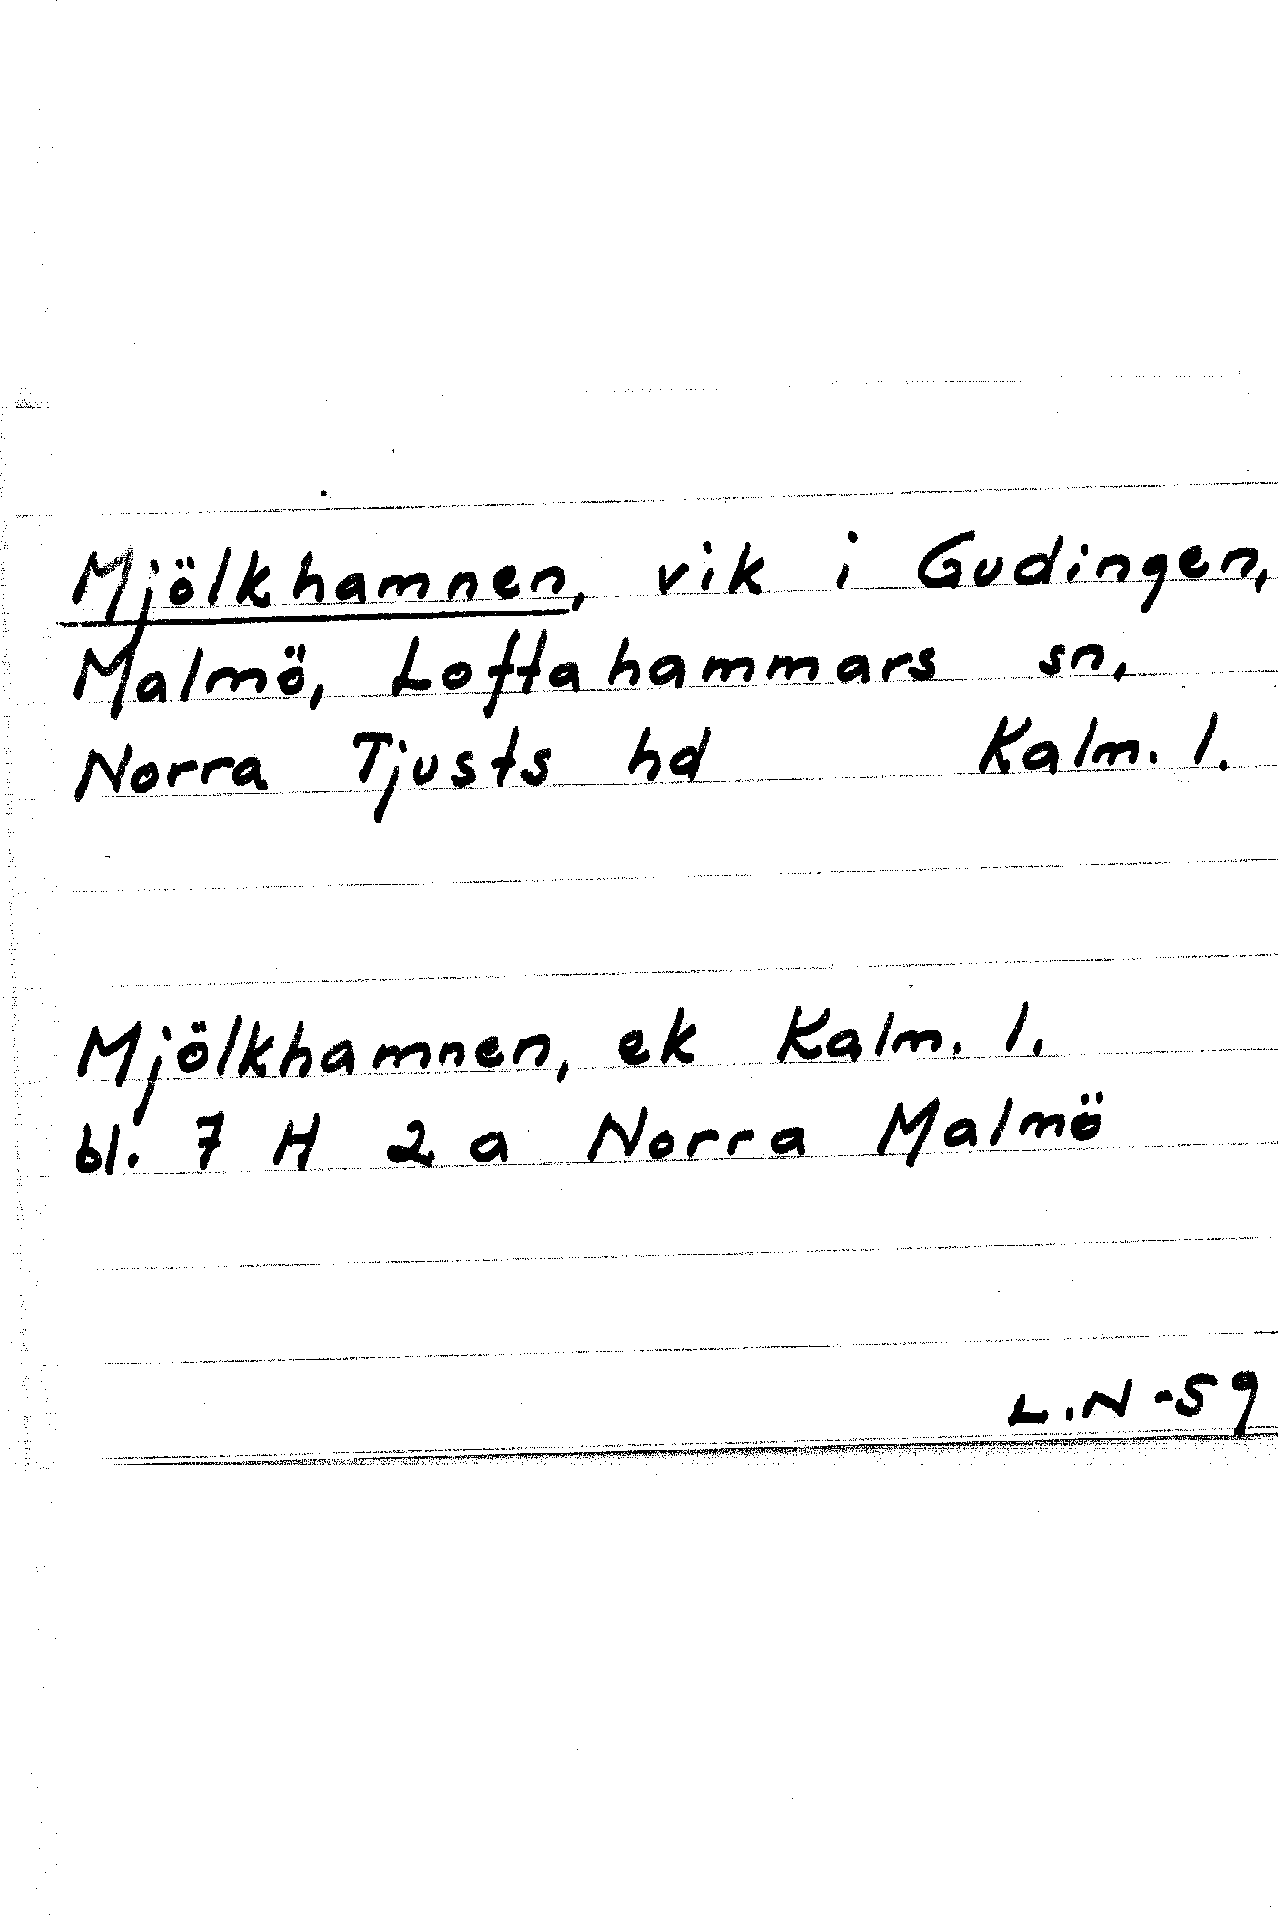 Mjölkhamnen, vik i Gudingen,
Malmö, Loftahammars sn,
Norra Tjusts hd Kalm. l.
Mjölkhamnen, ek Kalm. l.
bl. 7 H 2 a Norra Malmö
L.N -59